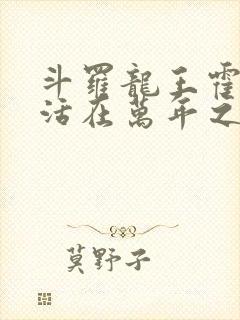 斗羅龍王霍
活在萬年之
莫野子